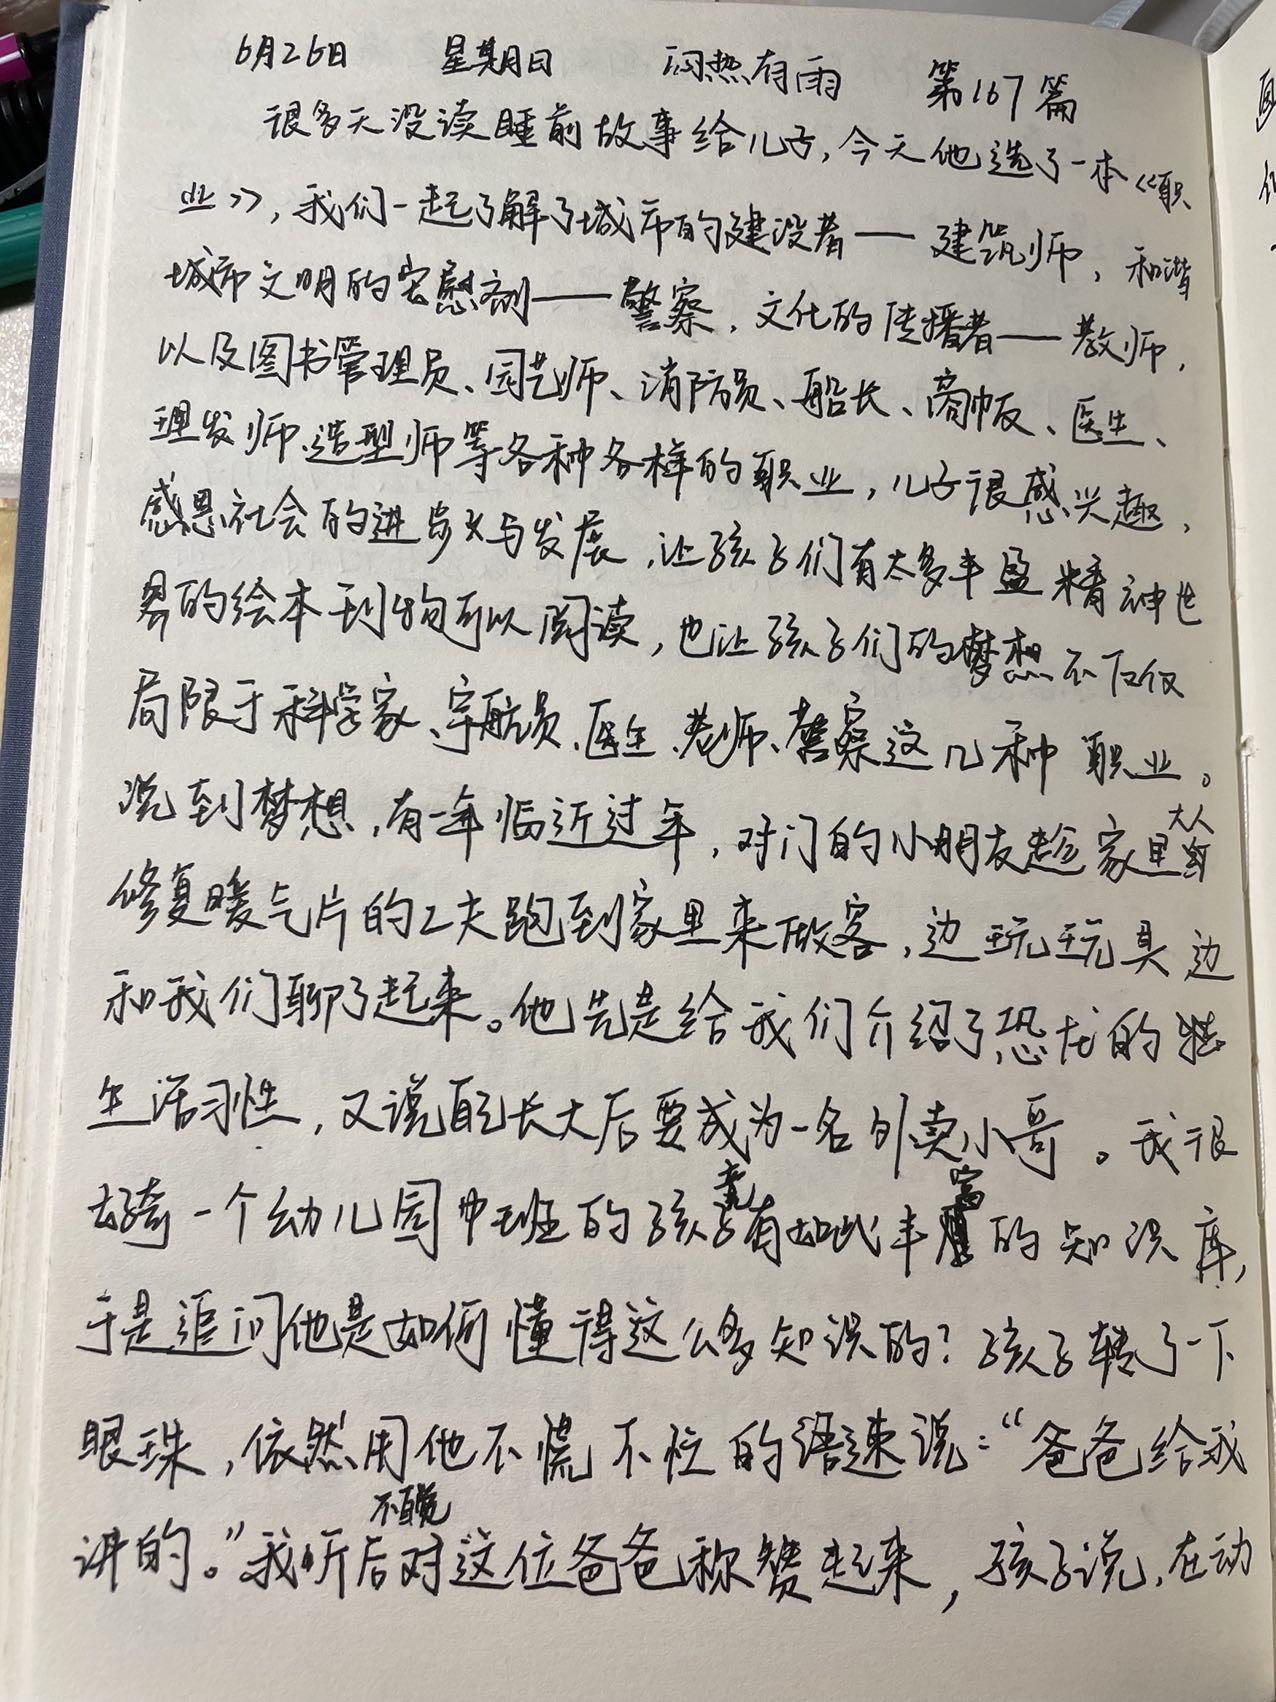 6月26日 星期日 闷热有雨 第167篇
很多天没读睡前故事给儿子,今天他选了一本《职
业》,我们一起了解了城市的建设者——建筑师,和谐
城市文明的安慰剂——警察,文化的传播者——教师,
以及图书管理员、园艺师、消防员、船长、商贩、医生、
理发师、造型师等各种各样的职业,儿子很感兴趣,
感恩社会的进步与发展,让孩子们有太多丰盈精神世
界的绘本刊物可以阅读,也让孩子们的梦想不仅仅
局限于科学家、宇航员、医生、老师、警察这几种职业。
说到梦想,有一年临近过年,对门的小朋友趁家里大人
修复暖气片的工夫跑到家里来做客,边玩玩具边
和我们聊了起来。他先是给我们介绍了恐龙的
生活习性,又说自己长大后要成为一名外卖小哥。我很
好奇一个幼儿园中班的孩子竟有如此丰富的知识库,
于是追问他是如何懂得这么多知识的?孩子转了一下
眼珠,依然用他不慌不忙的语速说:“爸爸给我
讲的。”我听后不自觉对这位爸爸称赞起来,孩子说,在动